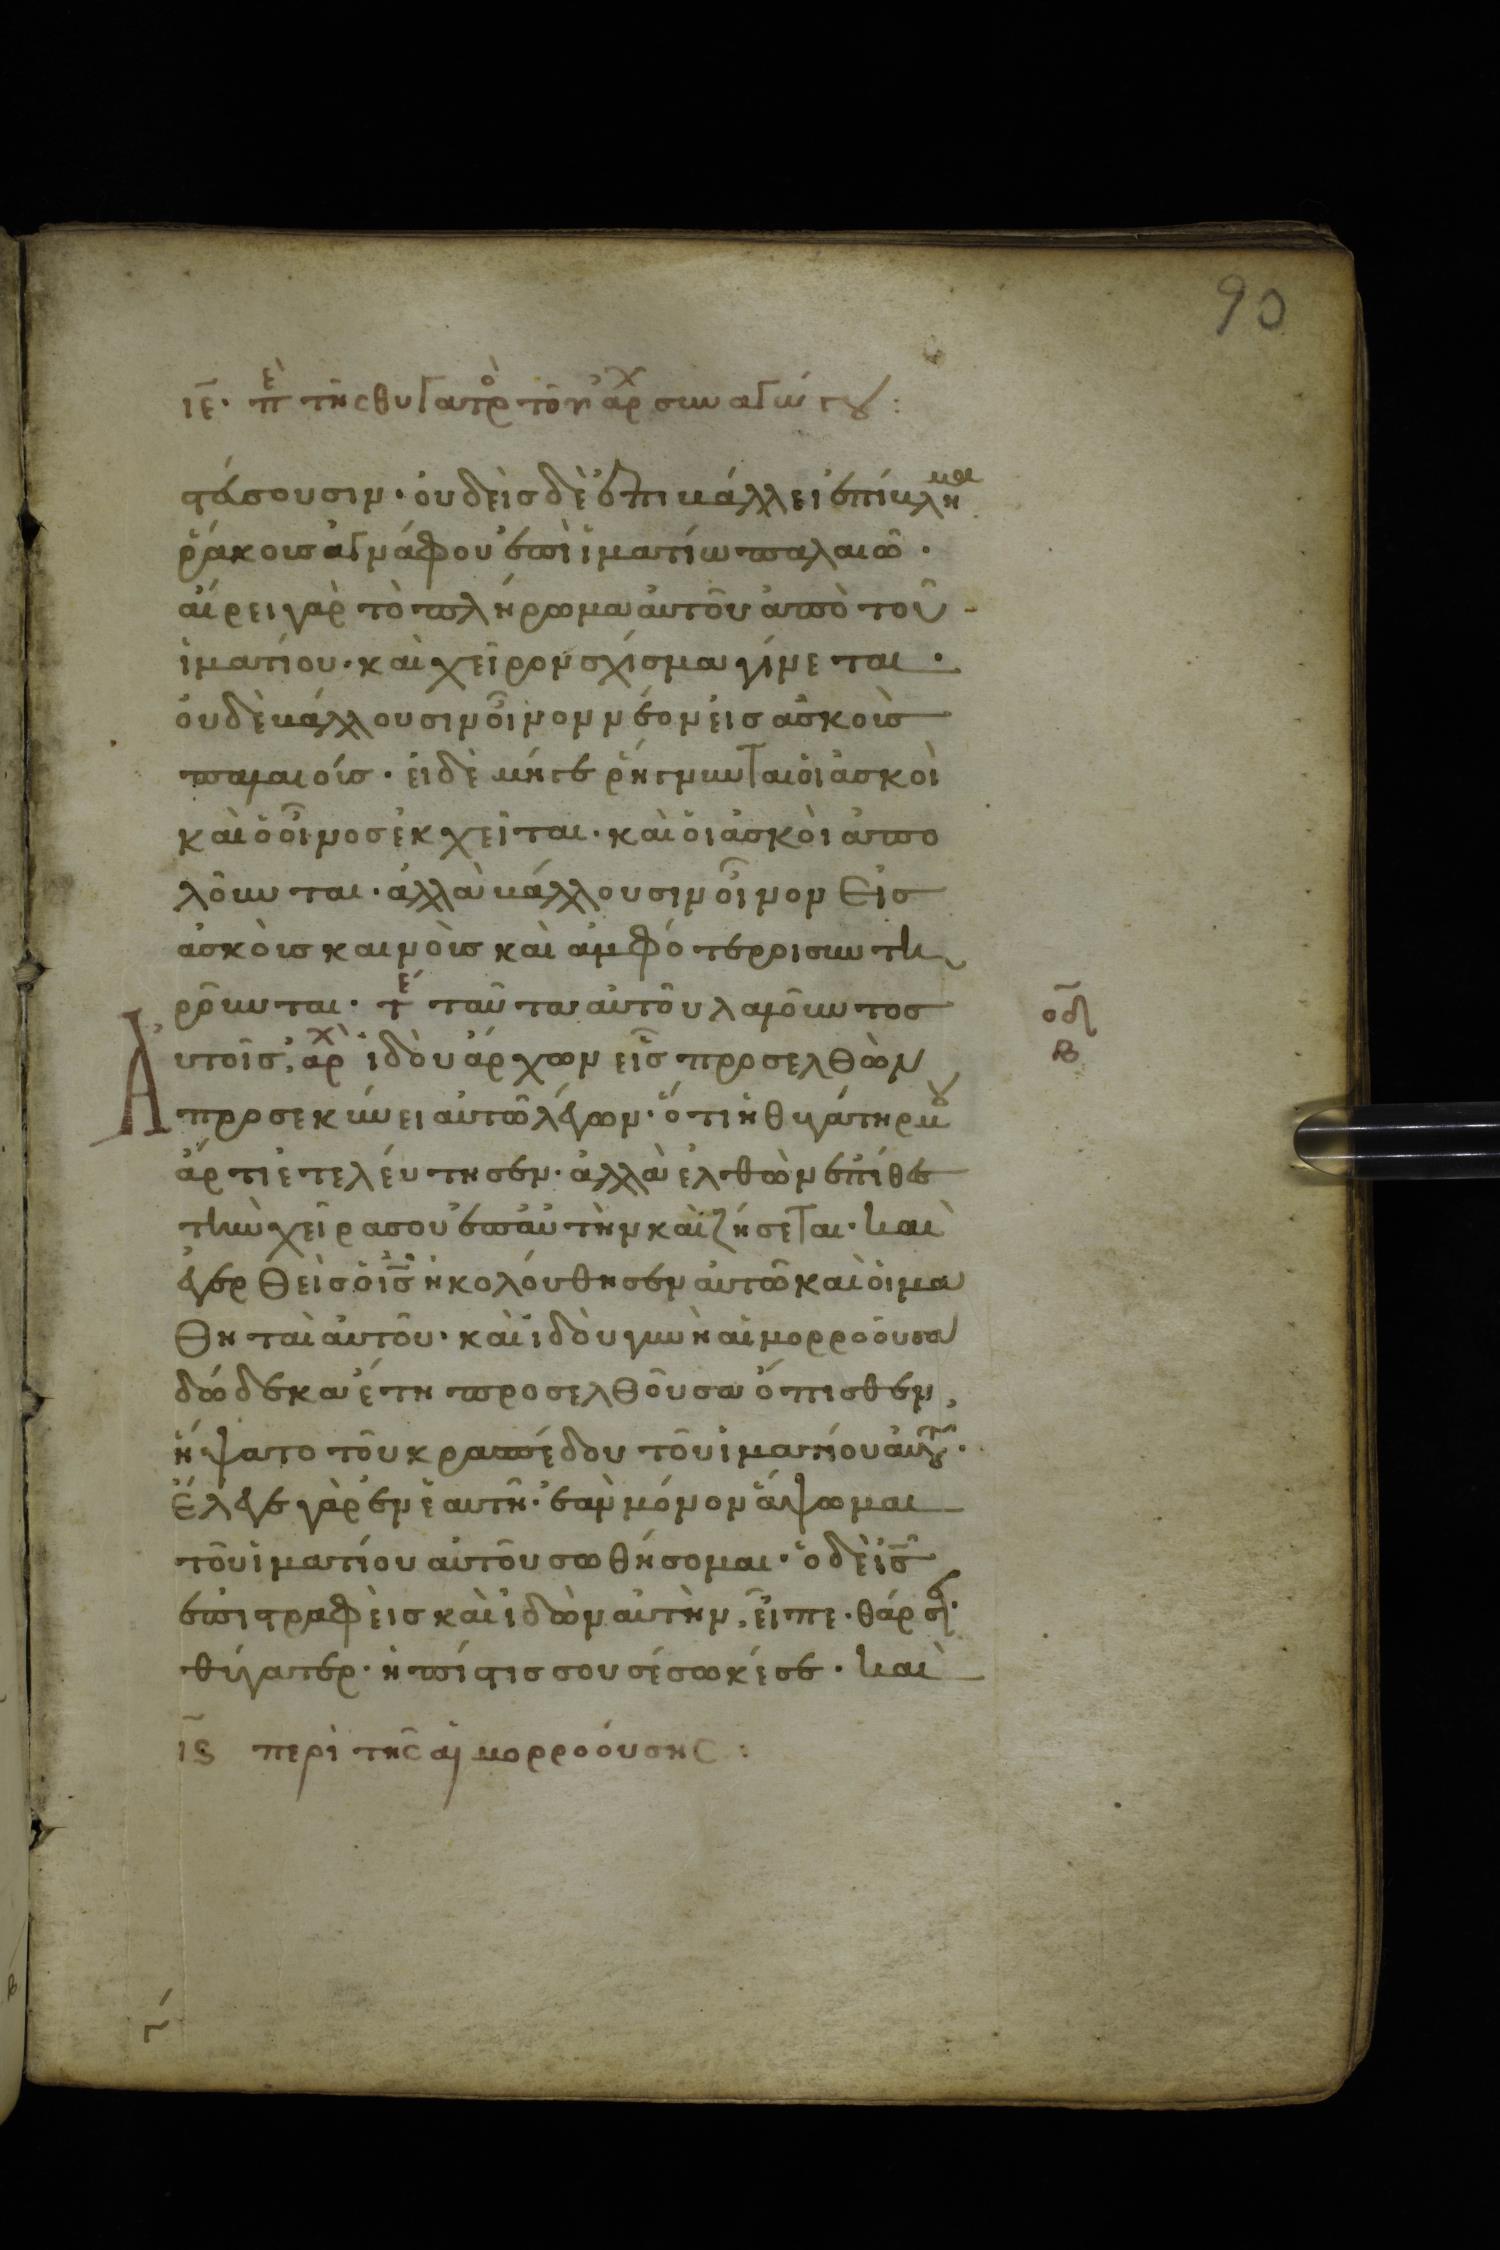 90
ιε̅· πε̣ὶ τῆς θυγατρὸ τοῦ ἀρχ συναγώγου:
στεύσουσιν· οὐδεὶς δὲ ἐπιβάλλει ἐπίβλημα
ῥάκους ἀγνάφου ἐπὶ ἱματίω παλαιῶ·
αἴρει γὰρ τὸ πλήρωμα αὐτοῦ ἀπὸ τοῦ
ἱματίου· καὶ χεῖρον σχίσμα γίνεται·
οὐδὲ βάλλουσιν οἶνον νέον εἰς ἀσκοὺς
παλαιούς· εἰ δὲ μήγε ῥήγνυνται οἱ ἀσκοὶ
καὶ ὁ οἶνος ἐκχεῖται· καὶ οἱ ἀσκοὶ ἀπο
λοῦνται· ἀλλὰ βάλλουσιν οἶνον εἰς
ἀσκοὺς καινοὺς καὶ ἀμφότεροι συντη
ροῦνται· τέ ταῦτα αὐτοῦ λαλοῦντος
Αὐτοῖς, ἀρχ ἰδοὺ ἄρχων εἷς προσελθὼν
προσεκύνει αὐτῶ λέγων· ὅτι ἡ θυγάτηρ μου
ἄρτι ἐτελεύτησεν· ἀλλὰ ἐλθὼν ἐπίθες
τὴν χεῖρα σου ἐπ' αὐτὴν καὶ ζήσεται· καὶ
ἐγερθεὶς ὁ ις̅ ἠκολούθησεν αὐτῶ καὶ οἱ μα
θηταὶ αὐτοῦ· καὶ ἰδοὺ γυνὴ αἱμορροοῦσα
δώδεκα ἔτη προσελθοῦσα ὄπισθεν,
ἥψατο τοῦ κρασπέδου τοῦ ἱματίου αὐτοῦ·
ἔλεγε γὰρ ἐν ἑαυτῆ· ἐὰν μόνον ἅψωμαι
τοῦ ἱματίου αὐτοῦ σωθήσομαι· ὁ δὲ ις̅
ἐπιστραφεὶς καὶ ἰδὼν αὐτὴν, εἶπε· θάρσει·
θύγατερ· ἡ πίστις σου σέσωκέ σε· καὶ
οδ̅
β
ις̅ περὶ τῆς αἱμορροούσης: